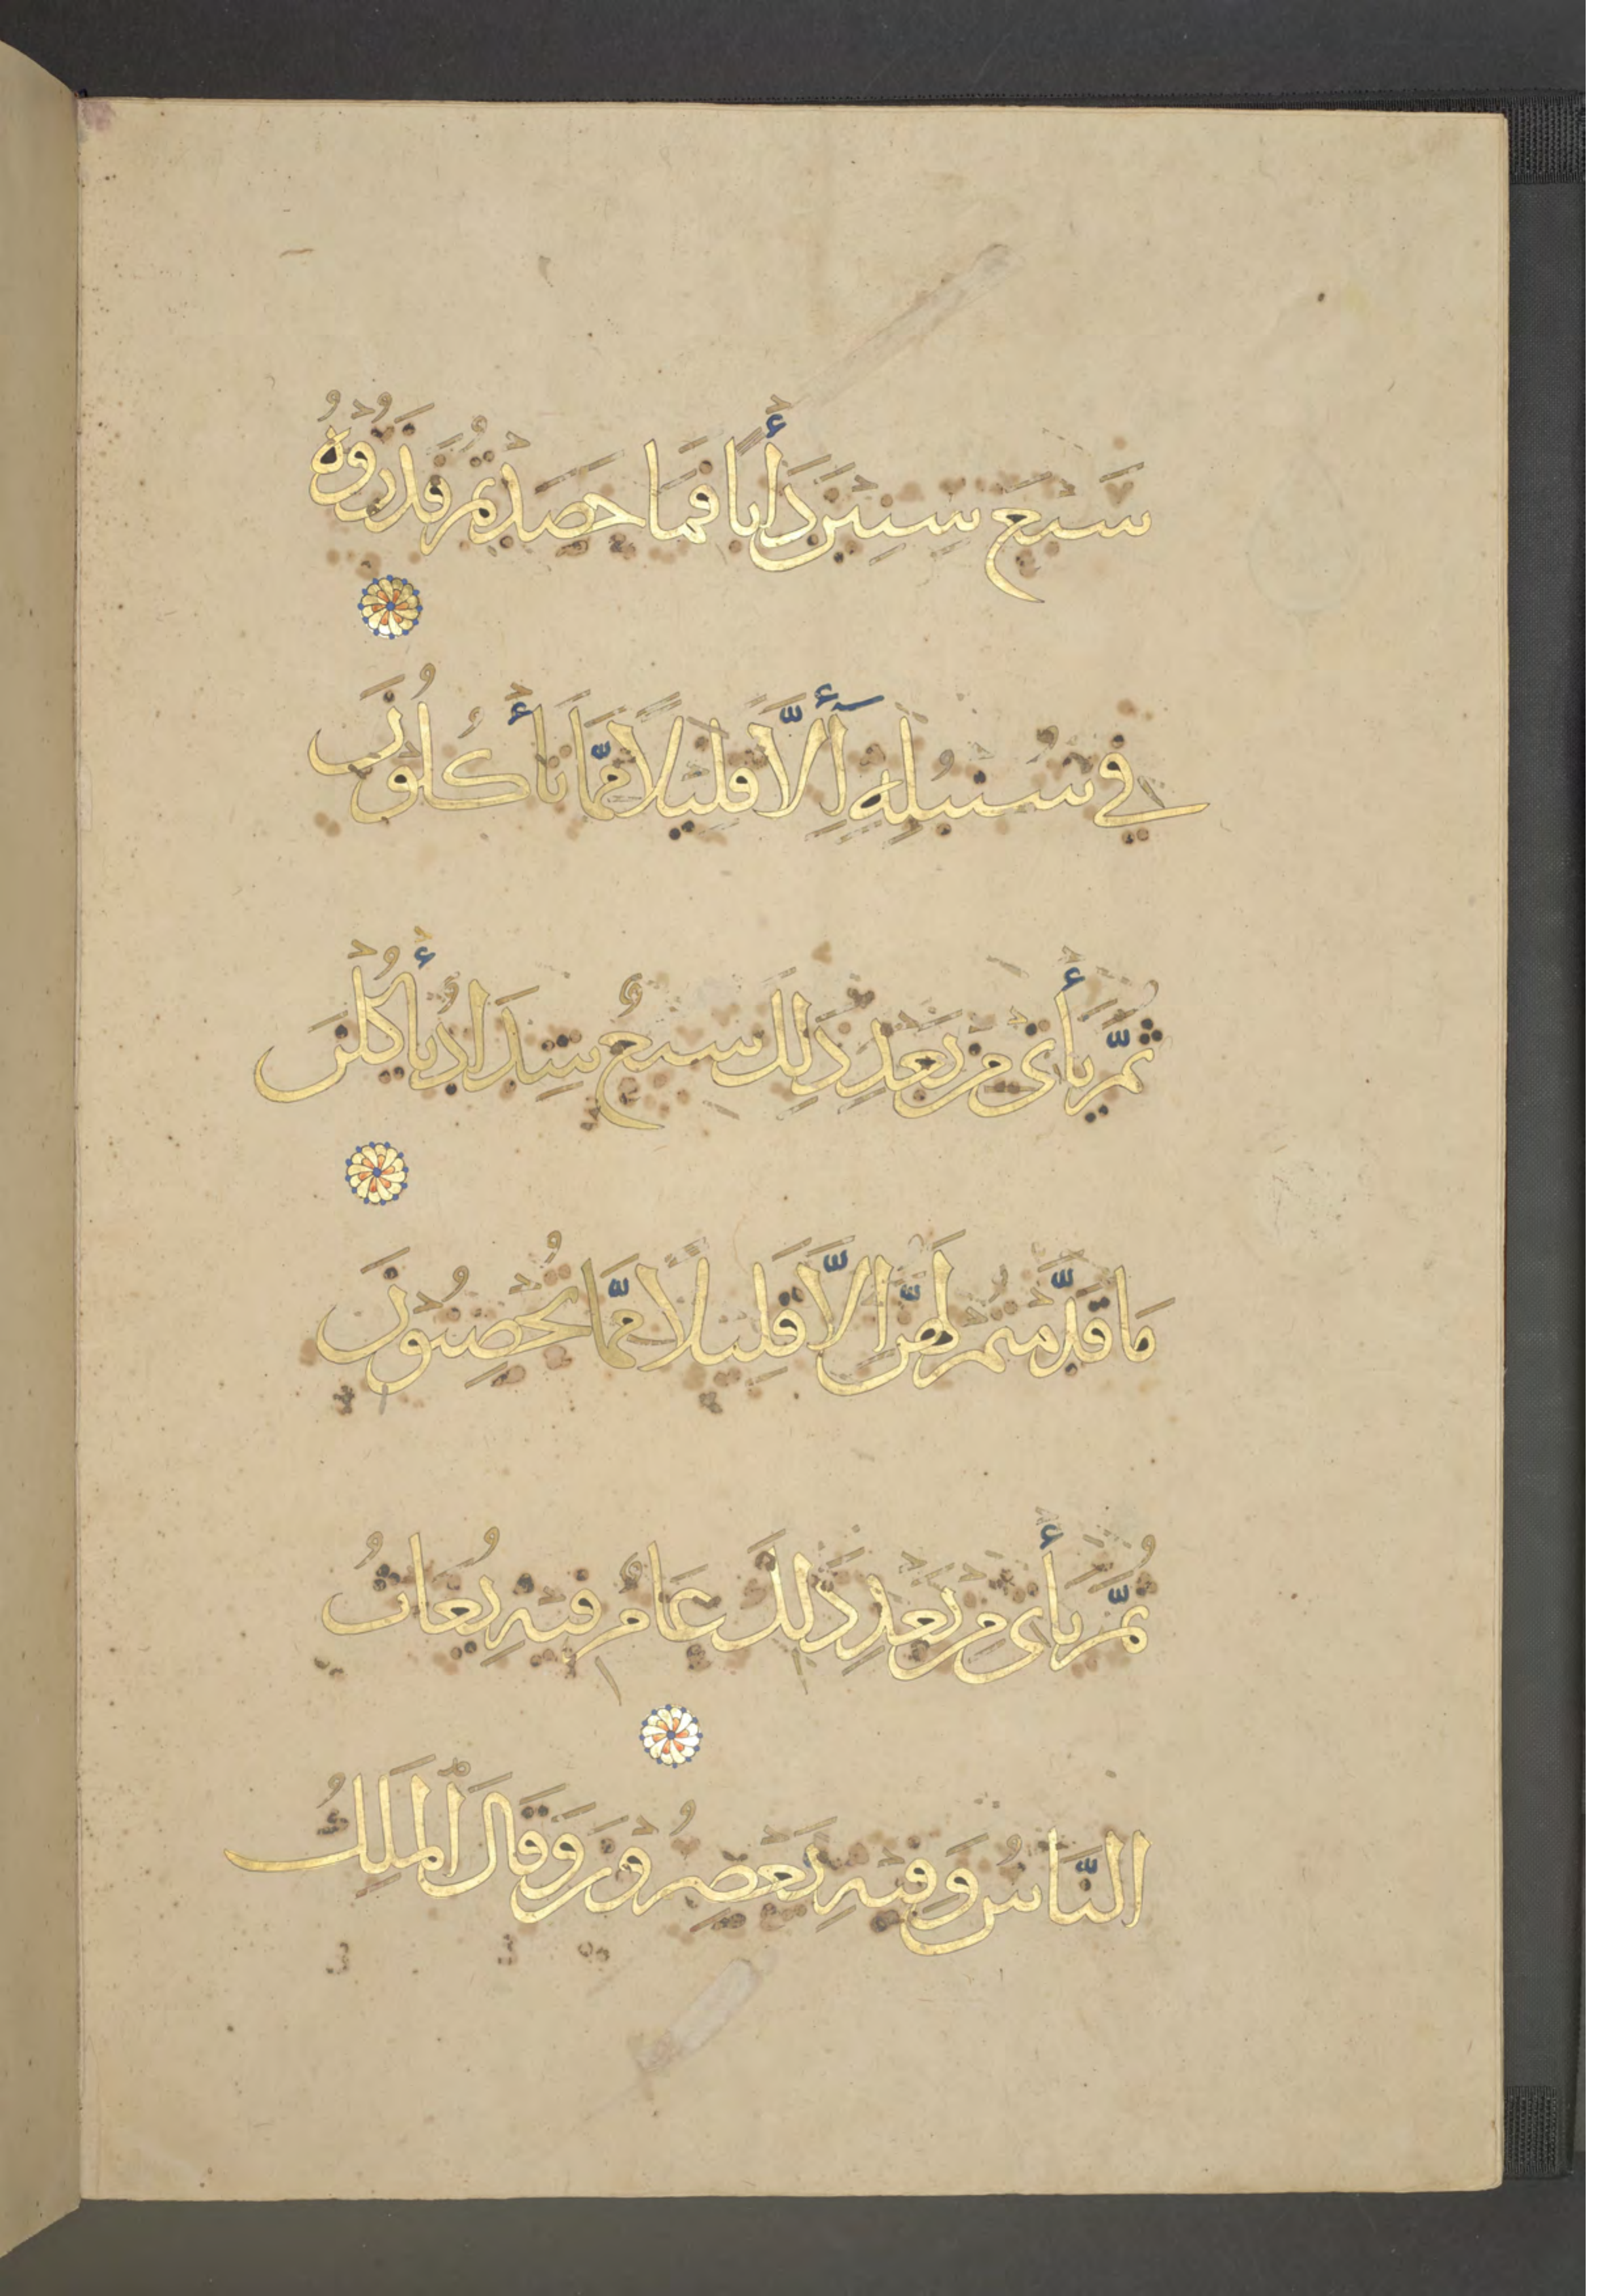 سَبْعَ سِنِينَ دَأْبًا فَمَا حَصَدْتُمْ فَذَرُوهُ
فِي سُنْبُلِهِ إِلَّا قَلِيلًا مِمَّا تَأْكُلُونَ
ثُمَّ يَأْتِي مِنْ بَعْدِ ذَلِكَ سَبْعٌ شِدَادٌ يَأْكُلْنَ
مَا قَدَّمْتُمْ لَهُنَّ إِلَّا قَلِيلًا مِمَّا تُحْصِنُونَ
ثُمَّ يَأْتِي مِنْ بَعْدِ ذَلِكَ عَامٌ فِيهِ يُغَاثُ
النَّاسُ وَفِيهِ يَعْصِرُونَ وَقَالَ الْمَلِكُ